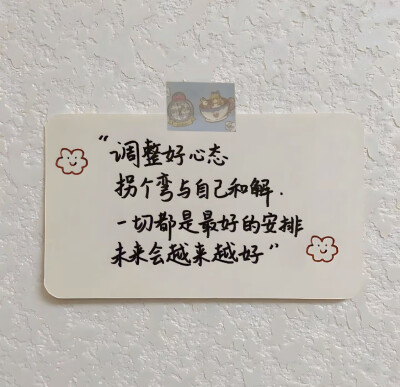 “调整好心态
拐个弯与自己和解.
一切都是最好的安排
未来会越来越好”